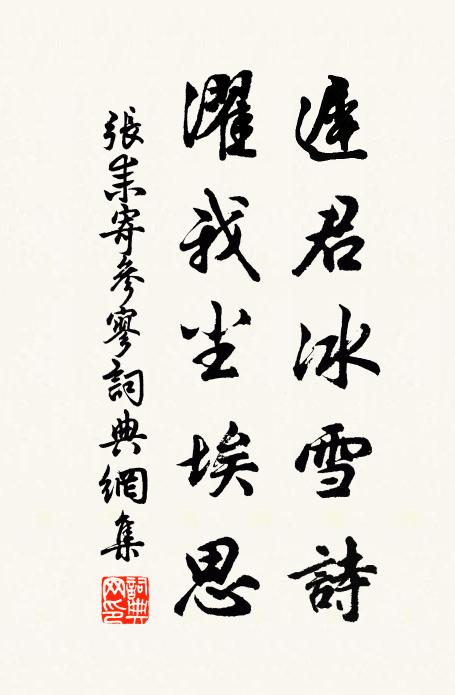 遲君冰雪詩
濯我尘埃思
張耒寄參寥詞典網集
詞典網印